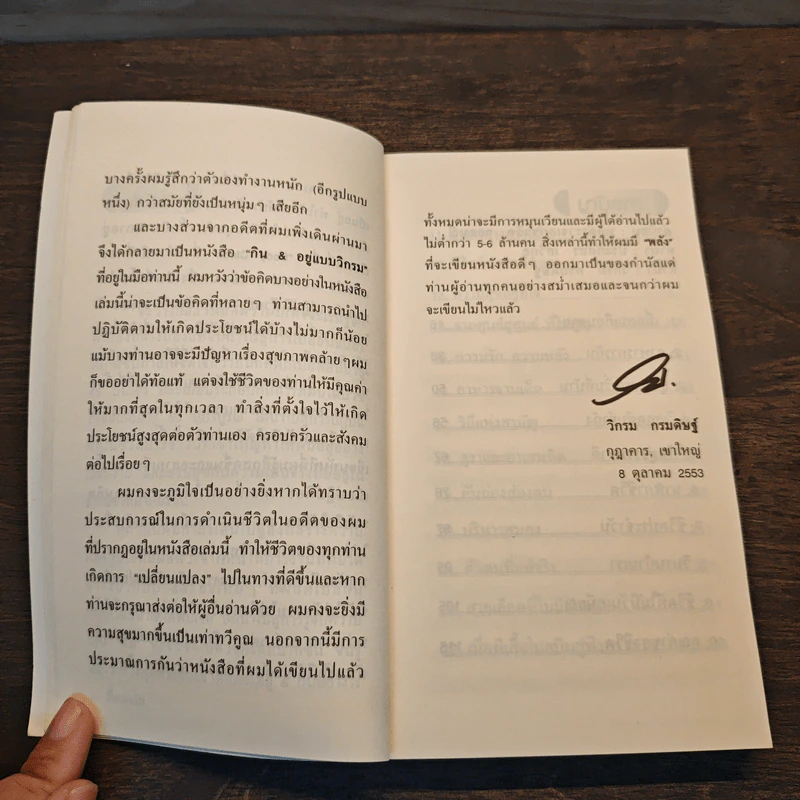 บางครั้งผมรู้สึกว่าตัวเองทำงานหนัก (อีกรูปแบบ
หนึ่ง) กว่าสมัยที่ยังเป็นหนุ่มๆ เสียอีก
และบางส่วนจากอดีตที่ผมเพิ่งเดินผ่านมา
จึงได้กลายมาเป็นหนังสือ "กิน & อยู่แบบวิกรม"
ที่อยู่ในมือท่านนี้ ผมหวังว่าข้อคิดบางอย่างในหนังสือ
เล่มนี้น่าจะเป็นข้อคิดที่หลายๆ ท่านสามารถนำไป
ปฏิบัติตามให้เกิดประโยชน์ได้บ้างไม่มากก็น้อย
แม้บางท่านอาจจะมีปัญหาเรื่องสุขภาพคล้ายๆผม
ก็ขออย่าได้ท้อแท้ แต่จงใช้ชีวิตของท่านให้มีคุณค่า
ให้มากที่สุดในทุกเวลา ทำสิ่งที่ตั้งใจไว้ให้เกิด
ประโยชน์สูงสุดต่อตัวท่านเอง ครอบครัวและสังคม
ต่อไปเรื่อยๆ
ผมคงจะภูมิใจเป็นอย่างยิ่งหากได้ทราบว่า
ประสบการณ์ในการดำเนินชีวิตในอดีตของผม
ที่ปรากฏอยู่ในหนังสือเล่มนี้ ทำให้ชีวิตของทุกท่าน
เกิดการ "เปลี่ยนแปลง" ไปในทางที่ดีขึ้นและหาก
ท่านจะกรุณาส่งต่อให้ผู้อื่นอ่านด้วย ผมคงจะยิ่งมี
ความสุขมากขึ้นเป็นเท่าทวีคูณ นอกจากนี้มีการ
ประมาณการกันว่าหนังสือที่ผมได้เขียนไปแล้ว
ทั้งหมดน่าจะมีการหมุนเวียนและมีผู้ได้อ่านไปแล้ว
ไม่ต่ำกว่า 5-6 ล้านคน สิ่งเหล่านี้ทำให้ผมมี "พลัง"
ที่จะเขียนหนังสือดีๆ ออกมาเป็นของกำนัลแด่
ท่านผู้อ่านทุกคนอย่างสม่ำเสมอและจนกว่าผม
จะเขียนไม่ไหวแล้ว
วิกรม กรมดิษฐ์
กุฎาคาร, เขาใหญ่
8 ตุลาคม 2553